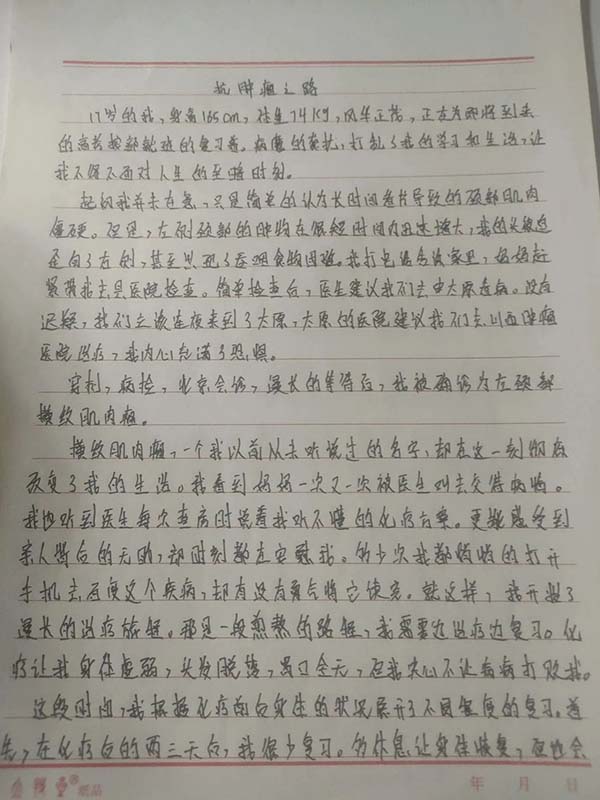 抗肿瘤之路
17岁的我,身高165cm,体重74kg,风华正茂,正在为即将到来
的高考做部署的复习着。病魔的袭扰,打乱了我的学习和生活,让
我不得不面对人生的至暗时刻。
起初我并未在意,只是简单的认为长时间看片导致的颈部肌肉
僵硬。但是,左侧颈部的肿物在很短时间内迅速增大,我的头被迫
歪向了右侧,甚至出现了吞咽食物困难。我打电话告诉家里,妈妈赶
紧带我去县医院检查。简单检查后,医生建议我们去太原看病。没有
迟疑,我们立该连夜来到了太原,太原的医院建议我们去山西肿瘤
医院治疗,我内心充满了恐惧。
穿刺,病检,北京会诊,漫长的等待后,我被确诊为左颈部
横纹肌肉瘤。
横纹肌肉瘤,一个我以前从未听说过的名字,却在这一刻彻底
改变了我的生活。我看到妈妈一次又一次被医生叫去交待病情。
我也听到医生每次查房时说着我听不懂的化疗方案。更能感受到
亲人背后的无助,却时刻都在安慰我。多少次我都悄悄的打开
手机去百度这个疾病,却有没有勇气将它读完。就这样,我开起了
漫长的治疗旅程。那是一段煎熬的路程,我需要边治疗边复习。化
疗让我身体虚弱,头发脱落,胃口全无,但我决心不让病病打败我。
这段时间,我根据化疗前后身体的状况展开了不同程度的复习。首
先,在化疗后的两三天后,我很少复习。多休息让身体恢复,但也会
纸品
年 月 日